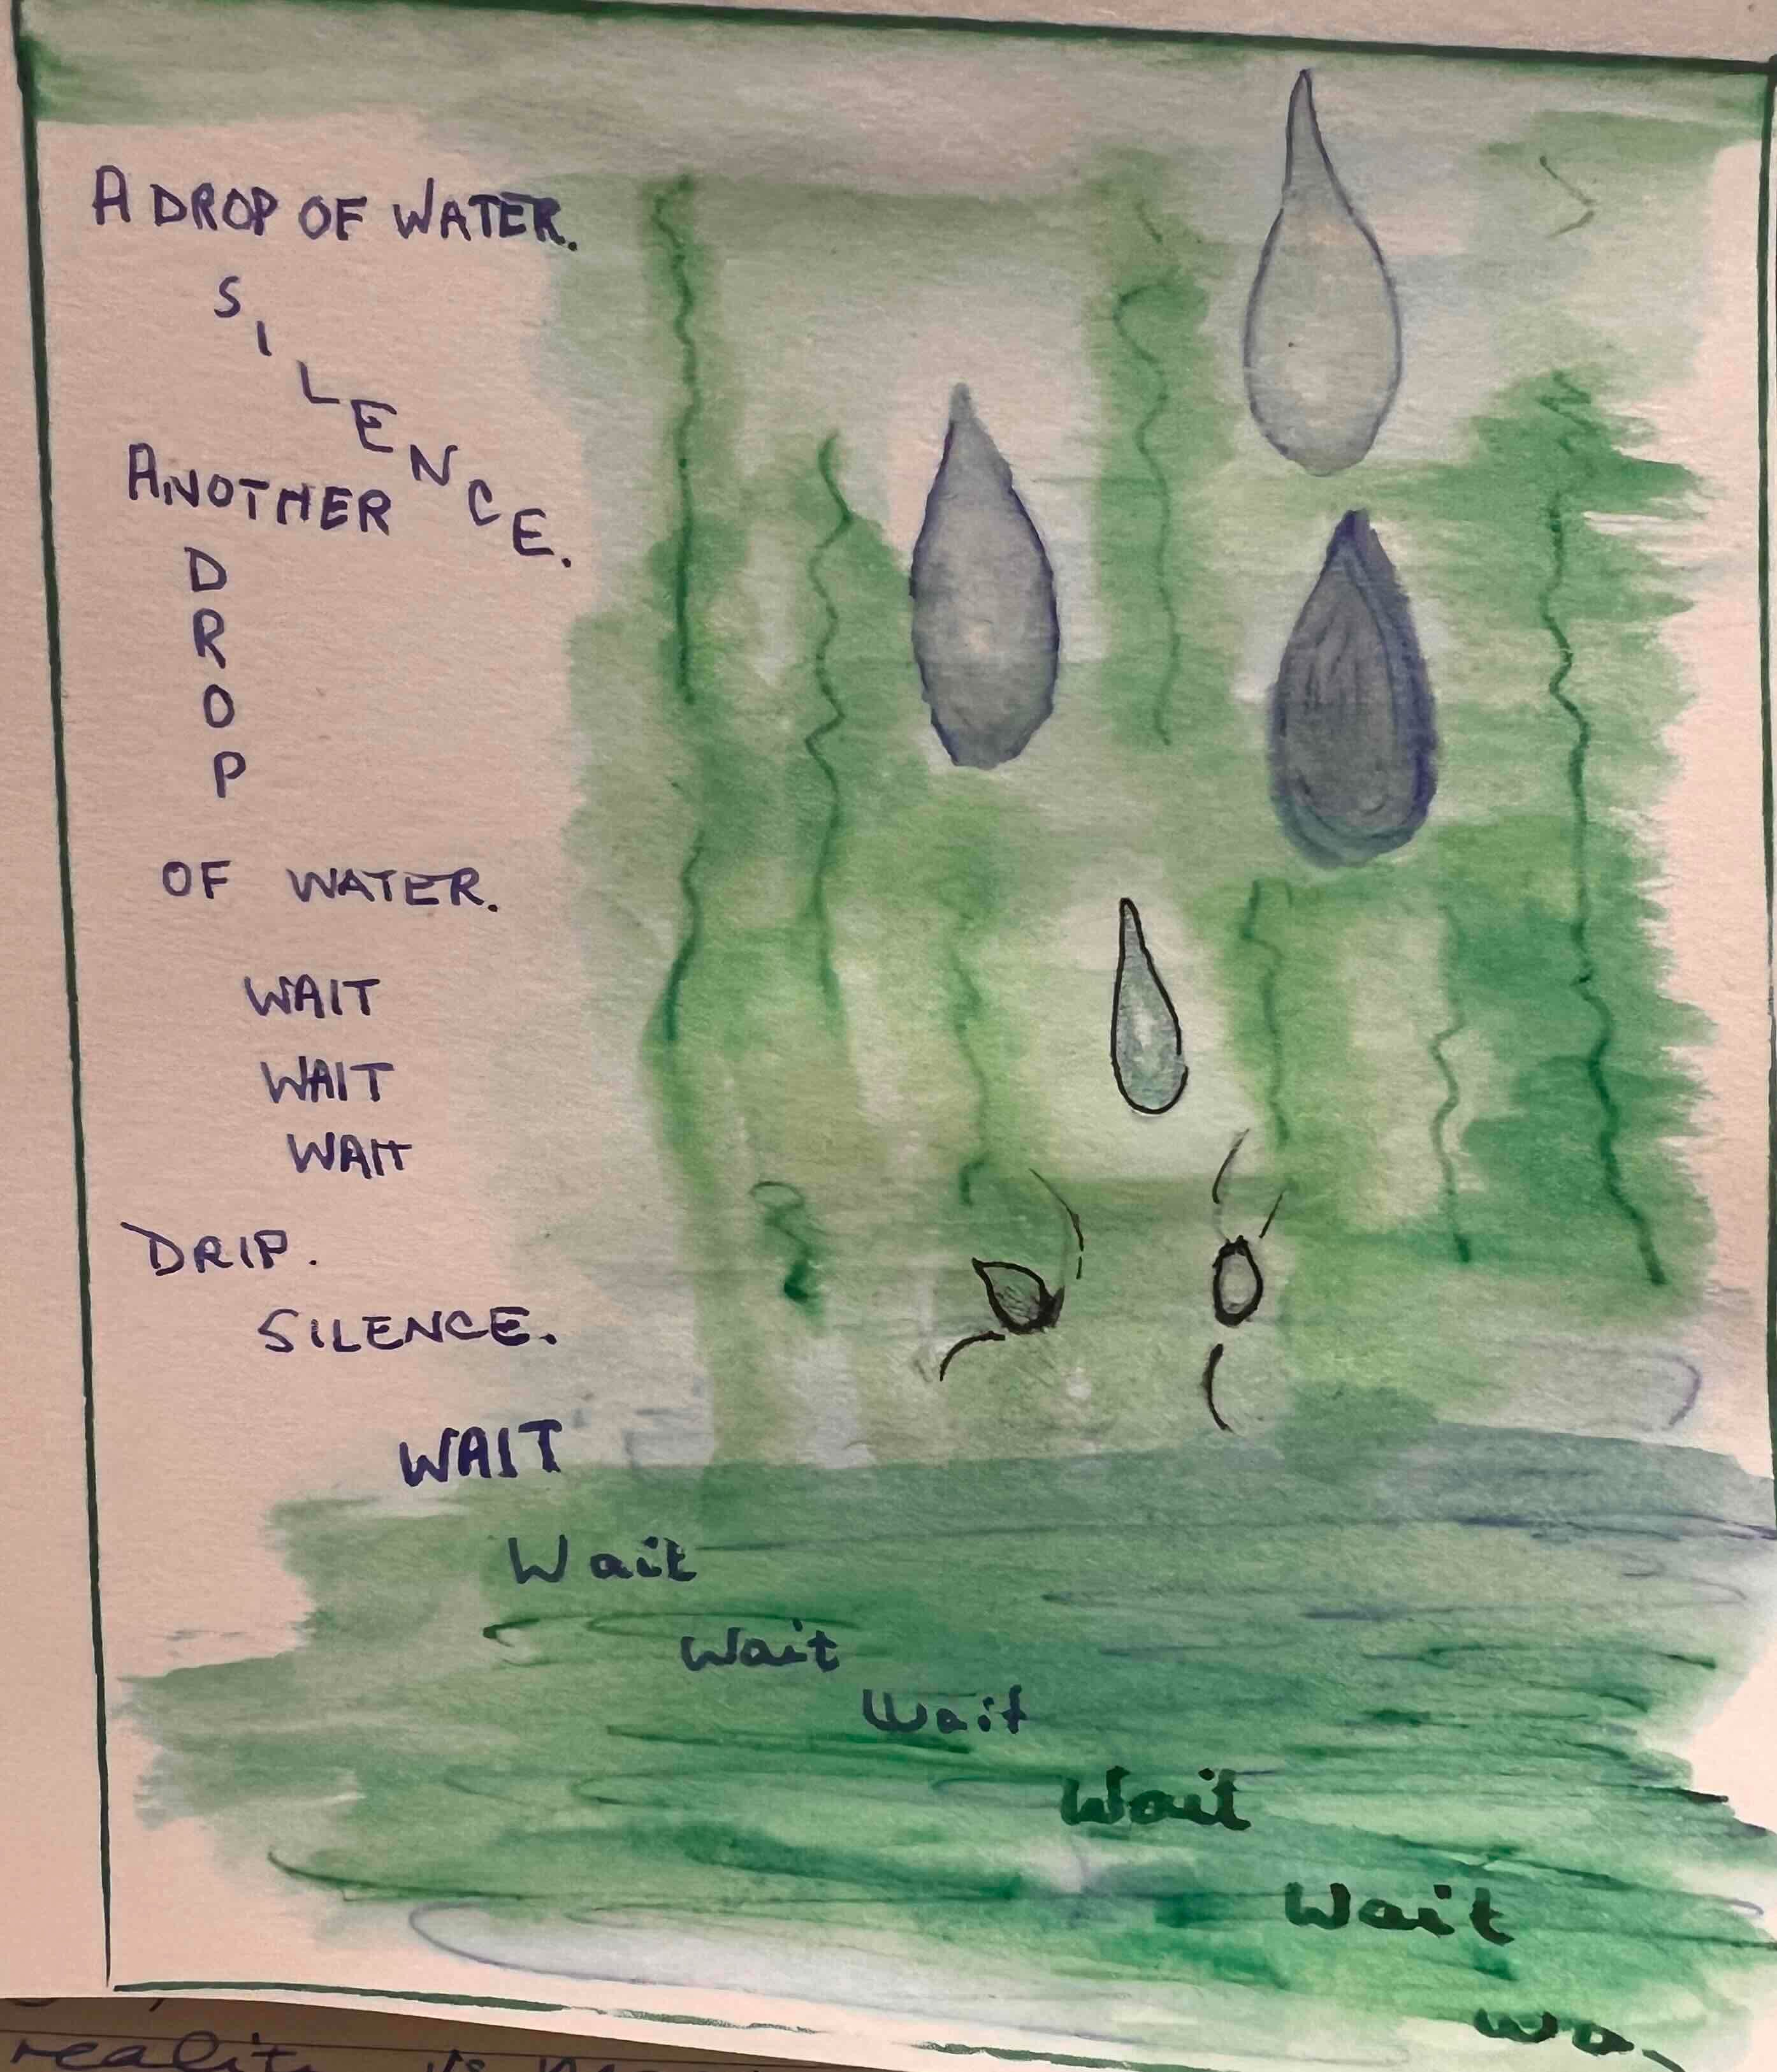 A DROP OF WATER.
SILENCE.
ANOTHER
DROP
OF WATER.
WAIT
WAIT
WAIT
DRIP.
SILENCE.
WAIT
Wait
Wait
Wait
Wait
Wait
wa
reality is